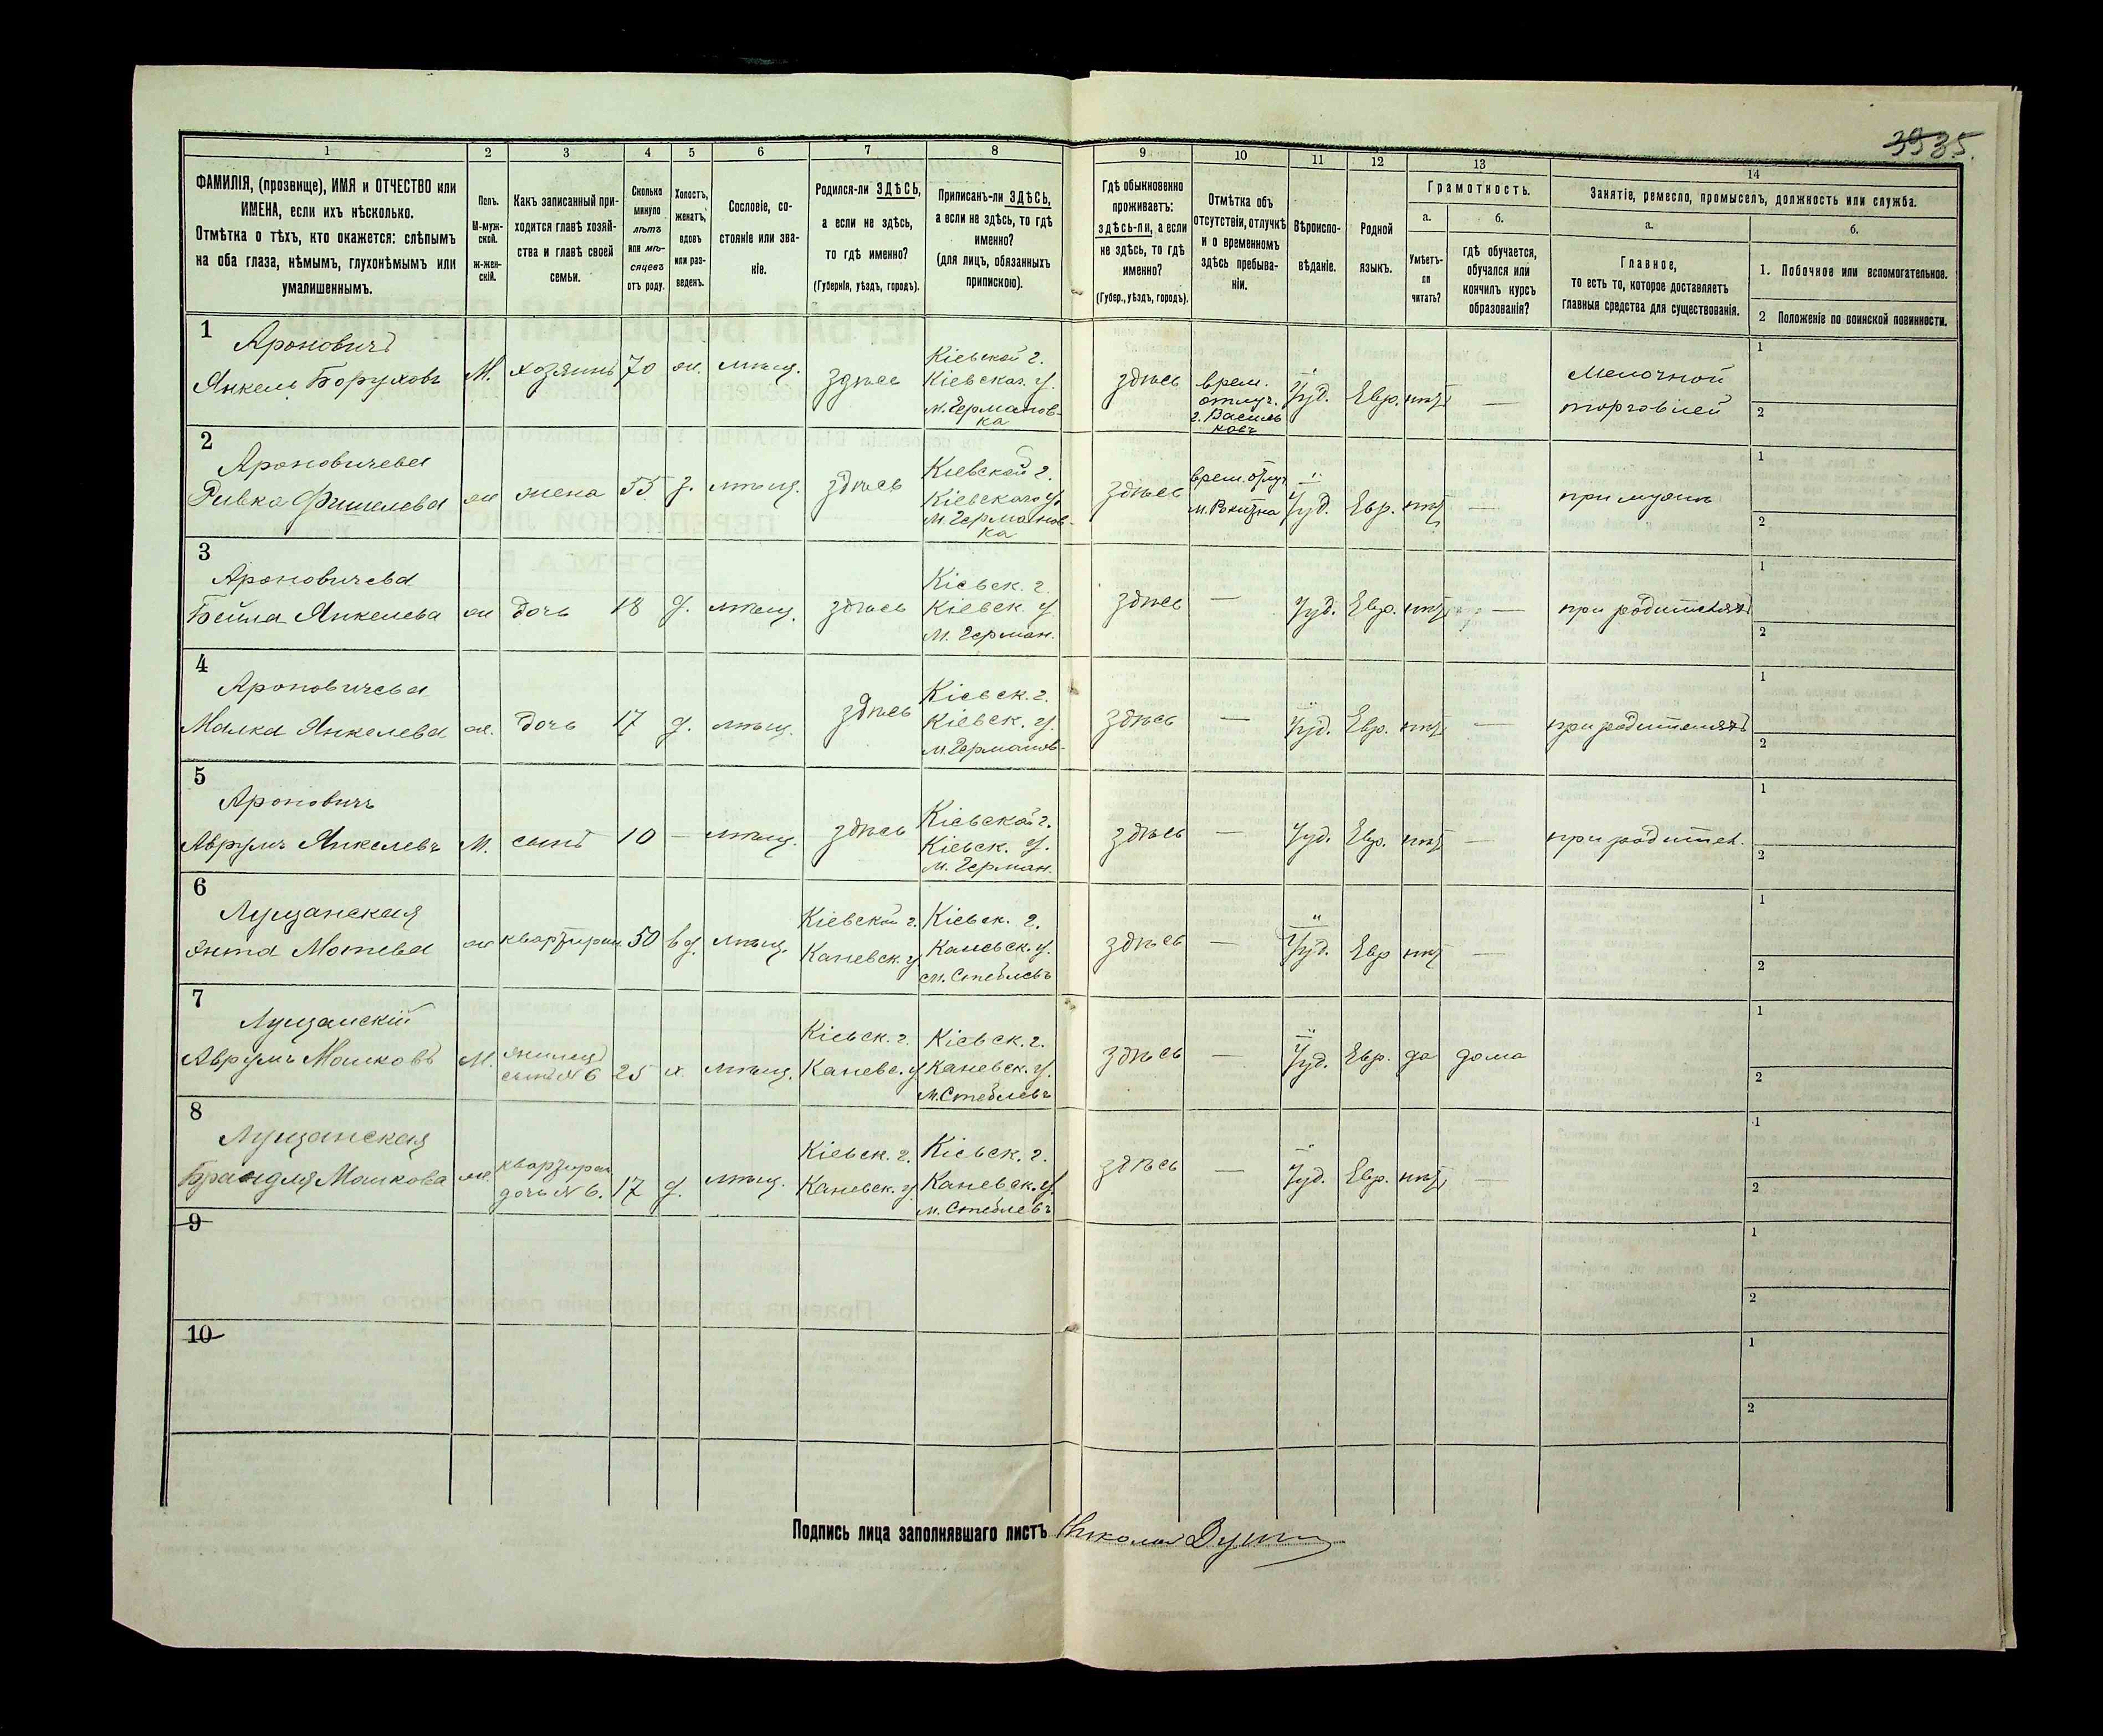 35.
1 2 3 4 5 6 7 8 9 10 11 12 13 14
ФАМИЛІЯ, (прозвище), ИМЯ и ОТЧЕСТВО или
ИМЕНА, если ихъ нѣсколько.
Отмѣтка о тѣхъ, кто окажется: слѣпымъ
на оба глаза, нѣмымъ, глухонѣмымъ или
умалишеннымъ.
Полъ.
М-муж-
ской.
ж-жен-
скій.
Какъ записанный при-
ходится главѣ хозяй-
ства и главѣ своей
семьи.
Сколько
минуло
лѣтъ
или мѣ-
сяцевъ
отъ роду.
Холостъ,
женатъ,
вдовъ
или раз-
веденъ.
Сословіе, со-
стояніе или зва-
ніе.
Родился-ли ЗДѢСЬ,
а если не здѣсь,
то гдѣ именно?
(Губернія, уѣздъ, городъ).
Приписанъ-ли ЗДѢСЬ,
а если не здѣсь, то гдѣ
именно?
(для лицъ, обязанныхъ
припискою).
Гдѣ обыкновенно
проживаетъ:
здѣсь-ли, а если
не здѣсь, то гдѣ
именно?
(Губер., уѣздъ, городъ).
Отмѣтка объ
отсутствіи, отлучкѣ
и о временномъ
здѣсь пребыва-
ніи.
Вѣроиспо-
вѣданіе.
Родной
языкъ.
Грамотность.
а.
Умѣетъ-
ли
читать?
б.
гдѣ обучается,
обучался или
кончилъ курсъ
образованія?
Занятіе, ремесло, промыселъ, должность или служба.
а.
Главное,
то есть то, которое доставляетъ
главныя средства для существованія.
б.
1. Побочное или вспомогательное.
2 Положеніе по воинской повинности.
1
Ароновичъ
Янкель Боруховъ
М.
хозяинъ
70
ж.
мѣщ.
здѣсь
Кіевской г.
Кіевскаг. у.
м. Германов-
ка
здѣсь
врем.
отлуч.
г. Василь
ковъ
Іуд.
Евр.
нѣтъ
—
Мелочной
торговлей
1
2
2
Ароновичева
Ривка Фишелева
ж
жена
55
з.
мѣщ.
здѣсь
Кіевской г.
Кіевскаго у.
м. Германов-
ка
здѣсь
врем. отлуч
Іуд.
Евр.
нѣтъ
—
при мужѣ
1
2
3
Ароновичева
Бейла Янкелева
ж
дочь
18
д.
мѣщ.
здѣсь
Кіевск. г.
Кіевск. у.
м. Герман.
здѣсь
—
Іуд.
Евр.
нѣтъ
—
при родителяхъ
1
2
4
Ароновичева
Малка Янкелева
ж.
дочь
17
д.
мѣщ.
здѣсь
Кіевск. г.
Кіевск. у.
м. Германов-
здѣсь
—
Іуд.
Евр.
нѣтъ
—
при родителяхъ
1
2
5
Ароновичъ
Аврумъ Янкелевъ
М.
сынъ
10
—
мѣщ.
здѣсь
Кіевской г.
Кіевск. у.
м. Герман.
здѣсь
—
Іуд.
Евр.
нѣтъ
—
при родител.
1
2
6
Лущанская
Энта Мотева
ж
квартиран.
50
вд.
мѣщ.
Кіевской г.
Каневск. у
Кіевск. г.
Каневск. у.
м. Стеблевъ
здѣсь
—
Іуд.
Евр
нѣтъ
—
1
2
7
Лущанскій
Аврумъ Мошковъ
М.
жилецъ
сынъ N 6
25
х.
мѣщ.
Кіевск. г.
Каневс. у
Кіевск. г.
Каневск. у.
м. Стеблевъ
здѣсь
—
Іуд.
Евр.
да
дома
1
2
8
Лущанская
Брандля Мошкова
ж.
квартиран
дочь N 6.
17
д.
мѣщ.
Кіевск. г.
Каневск. у
Кіевск. г.
Каневск. у.
м. Стеблевъ
здѣсь
—
Іуд.
Евр.
нѣтъ
—
1
2
9
1
2
10
1
2
Подпись лица заполнявшаго листъ Николай